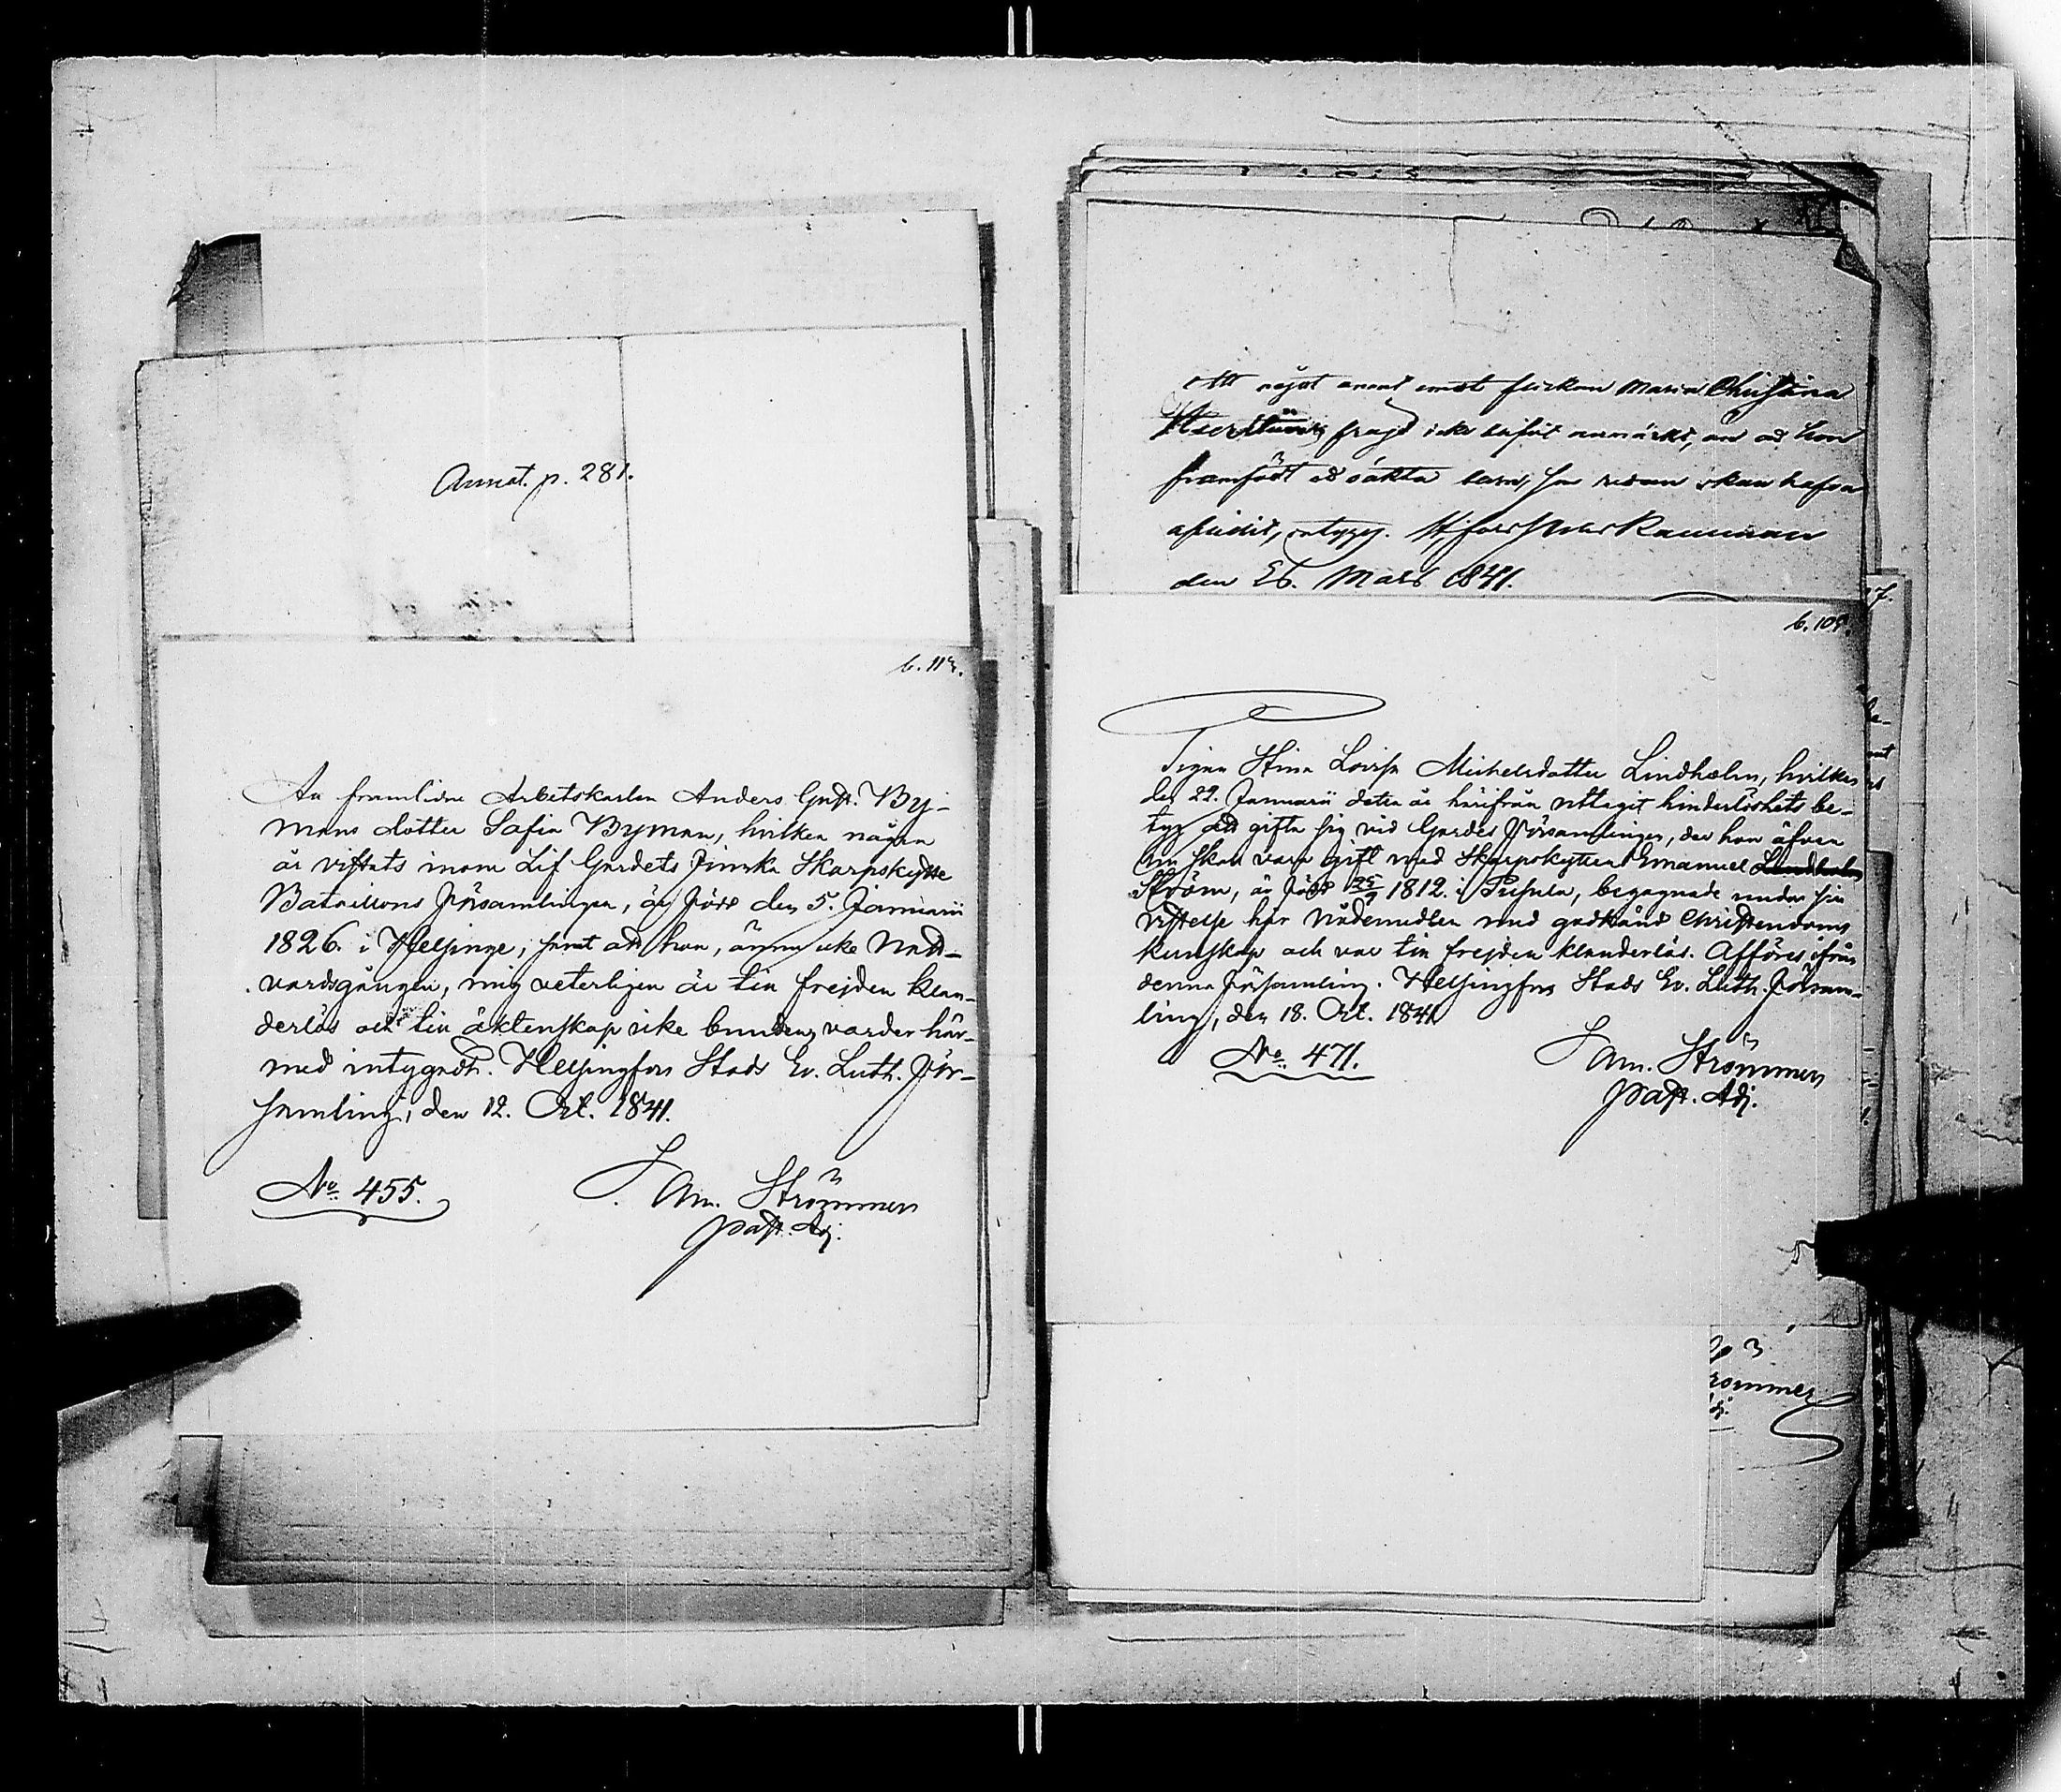 Annot. p. 281.
b. 113.
An framlidne Arbetskarlen Anders Gust. By-
mans dotter Sofia Byman, hvilken någre
år vistats inom Lif Gardets Finska Skarpskytte
Bataillons Församlingen, är född den 5. Januarii
1826. i Helsinge; samt att hon, ännu icke Natt-
vardsgången, mig veterligen är till frejden klan-
derlös och till äktenskap icke bunden, varder här-
med intygadt. Helsingfors Stads Ev. Luth. För-
samling, den 12. Oct. 1841.
No. 455.
Sam. Strömmer
Past. Adj.
Att något annat emot flickan Maria Christina
frajd icke blifvit anmärkt, än att hon
framfödt et oäkta barn, som redan skall hafva
aflidit, intygas. H:fors
den 26. Mars 1841.
b. 109.
Pigan Stina Lovisa Michelsdotter Lindholm, hvilken
den 22. Januarii detta år härifrån uttagit hinderlöshets be-
tyg att gifta sig vid Gardes Församlingen, der hon äfven
nu skall vara gift med Skarpskytten Emanuel Lindholm
Ström, är född 25/7 1812. i Pusula, begagnade under sin
vistelse här Nådemedlen med godkänd Christendoms
kunskap och var till frejden klanderlös. Afföres ifrån
denna församling. Helsingfors Stads Ev. Luth. Försam-
ling, den 18. Oct. 1841.
No. 471.
Sam. Strömmer
Past. Adj.
römmer
dj.